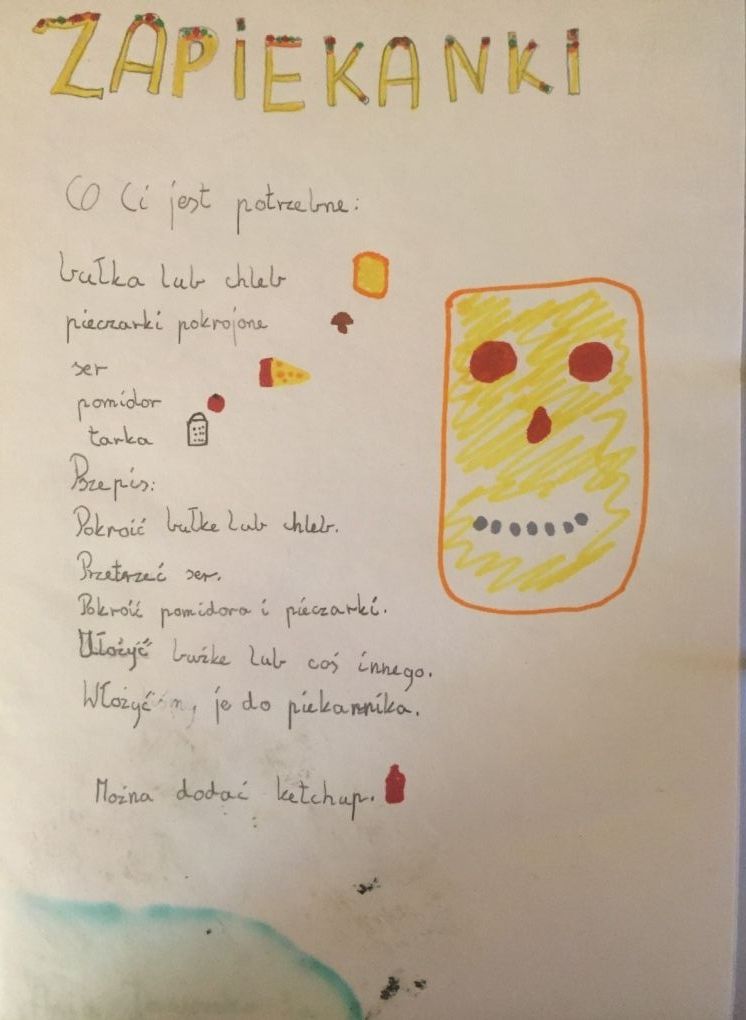 ZAPIEKANKI
Co Ci jest potrzebne:
bułka lub chleb
pieczarki pokrojone
ser
pomidor
tarka
Przepis:
Pokroić bułke lub chleb.
Przetrzeć ser.
Pokroić pomidora i pieczarki.
Ułożyć buźke lub coś innego.
Włożyć je do piekarnika.
Można dodać ketchup.